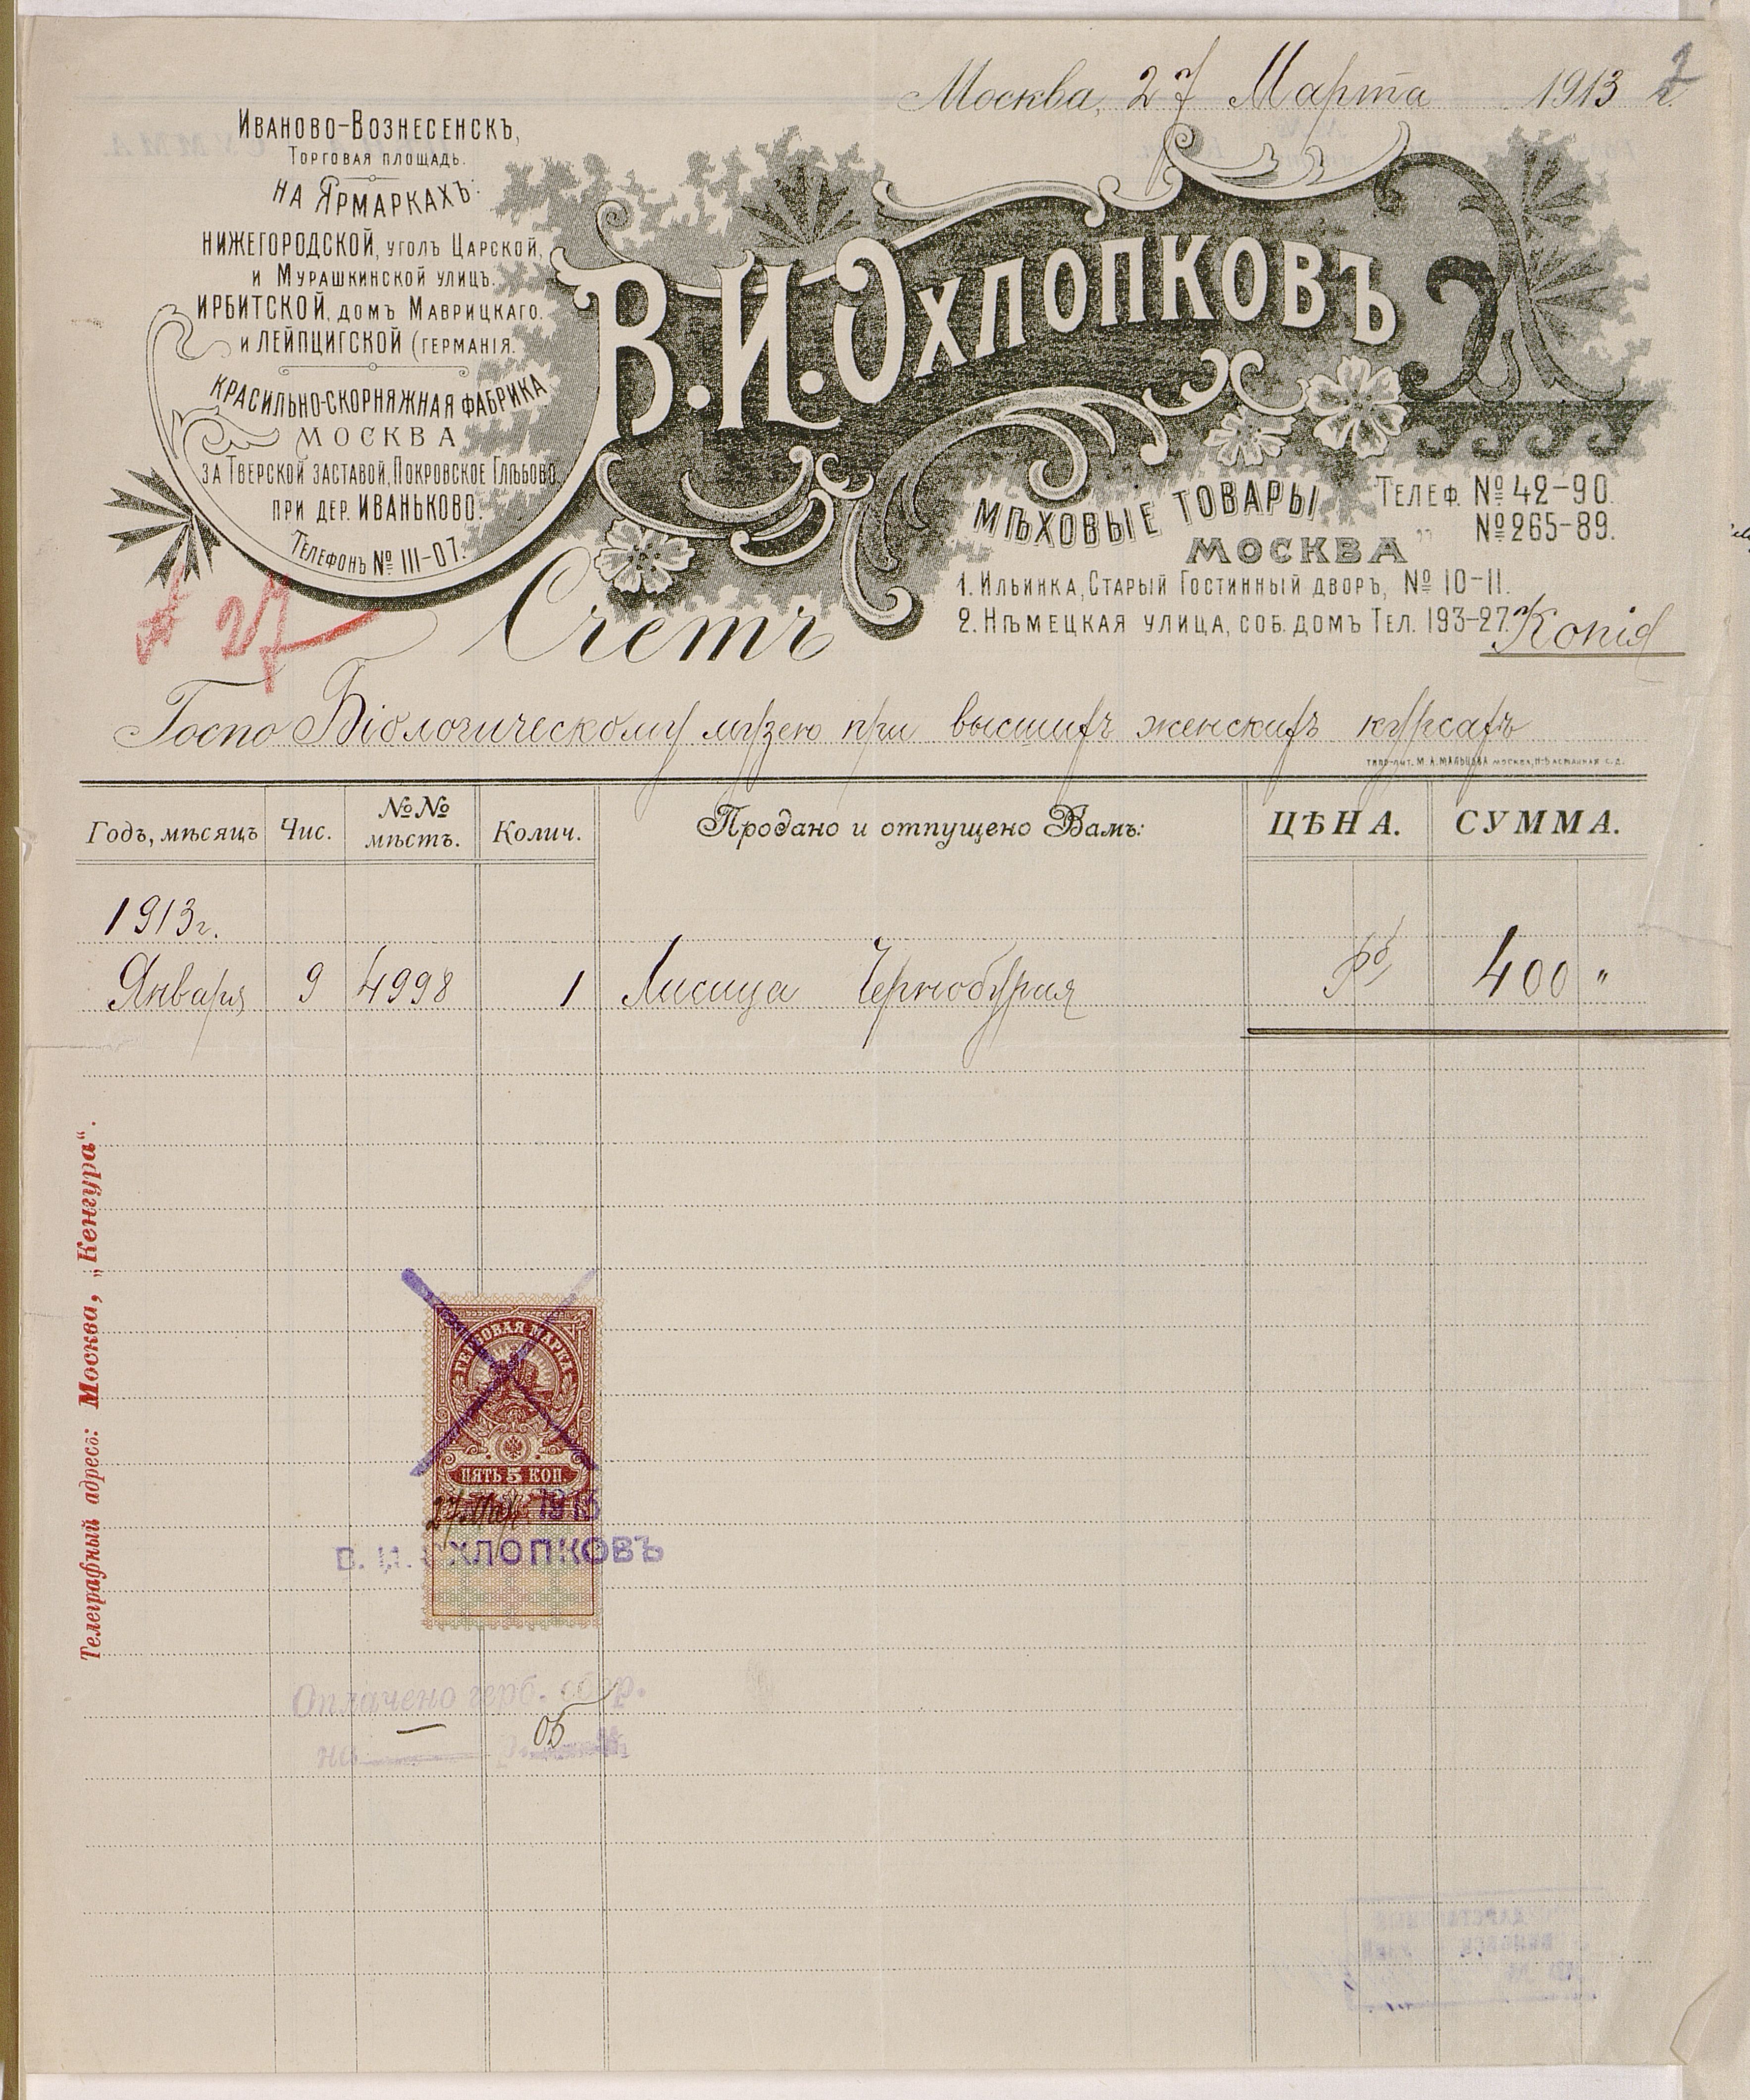 Москва, 27 Марта 1913 г.
2
Иваново-Вознесенскъ,
Торговая площадь.
на Ярмаркахъ:
Нижегородской, уголъ Царской,
и Мурашкинской улицъ.
Ирбитской, домъ Маврицкаго.
и Лейпцигской (Германія.
Красильно-скорняжная фабрика
Москва
за Тверской заставой, Покровское Глѣбово
при дер. Иваньково.
Телефонъ № 111-07.
В. И. Охлопковъ
Мѣховые товары
Телеф. № 42-90.
" № 265-89.
Москва
1. Ильинка, Старый Гостинный дворъ, № 10-11.
2. Нѣмецкая улица, соб. домъ Тел. 193-27.
Копія
27
Счетъ
Госпо Біологическому музею при высшихъ женскихъ курсахъ
типо-лит. М. А. Мальцова Москва,
Годъ, мѣсяцъ Чис. №№ мѣстъ. Колич. Продано и отпущено Вамъ: ЦѢНА. СУММА.
1913 г.
Января 9 4998 1 Лисица Чернобурая 400 "
Телеграфный адресъ: Москва, „Кенгура“.
ГЕРБОВАЯ МАРКА
ПЯТЬ 5 КОП.
27 Мар. 1913
В. И. ОХЛОПКОВЪ
Оплачено герб. сбор.
на — р. 05